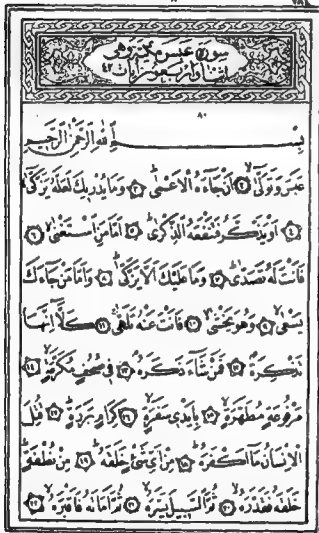 سورة عبس مكية وهي
بِسْمِ اللهِ الرَّحْمٰنِ الرَّحِيمِ
عَبَسَ وَتَوَلّٰى اَنْ جَاءَهُ الْاَعْمٰى وَمَا يُدْرِيكَ لَعَلَّهُ يَزَّكّٰى
اَوْ يَذَّكَّرُ فَتَنْفَعَهُ الذِّكْرٰى اَمَّا مَنِ اسْتَغْنٰى
فَاَنْتَ لَهُ تَصَدّٰى وَمَا عَلَيْكَ اَلَّا يَزَّكّٰى وَاَمَّا مَنْ جَاءَكَ
يَسْعٰى وَهُوَ يَخْشٰى فَاَنْتَ عَنْهُ تَلَهّٰى كَلَّا اِنَّهَا
تَذْكِرَةٌ فَمَنْ شَاءَ ذَكَرَهُ فِي صُحُفٍ مُكَرَّمَةٍ
مَرْفُوعَةٍ مُطَهَّرَةٍ بِاَيْدِي سَفَرَةٍ كِرَامٍ بَرَرَةٍ قُتِلَ
الْاِنْسَانُ مَا اَكْفَرَهُ مِنْ اَيِّ شَيْءٍ خَلَقَهُ مِنْ نُطْفَةٍ
خَلَقَهُ فَقَدَّرَهُ ثُمَّ السَّبِيلَ يَسَّرَهُ ثُمَّ اَمَاتَهُ فَاَقْبَرَهُ